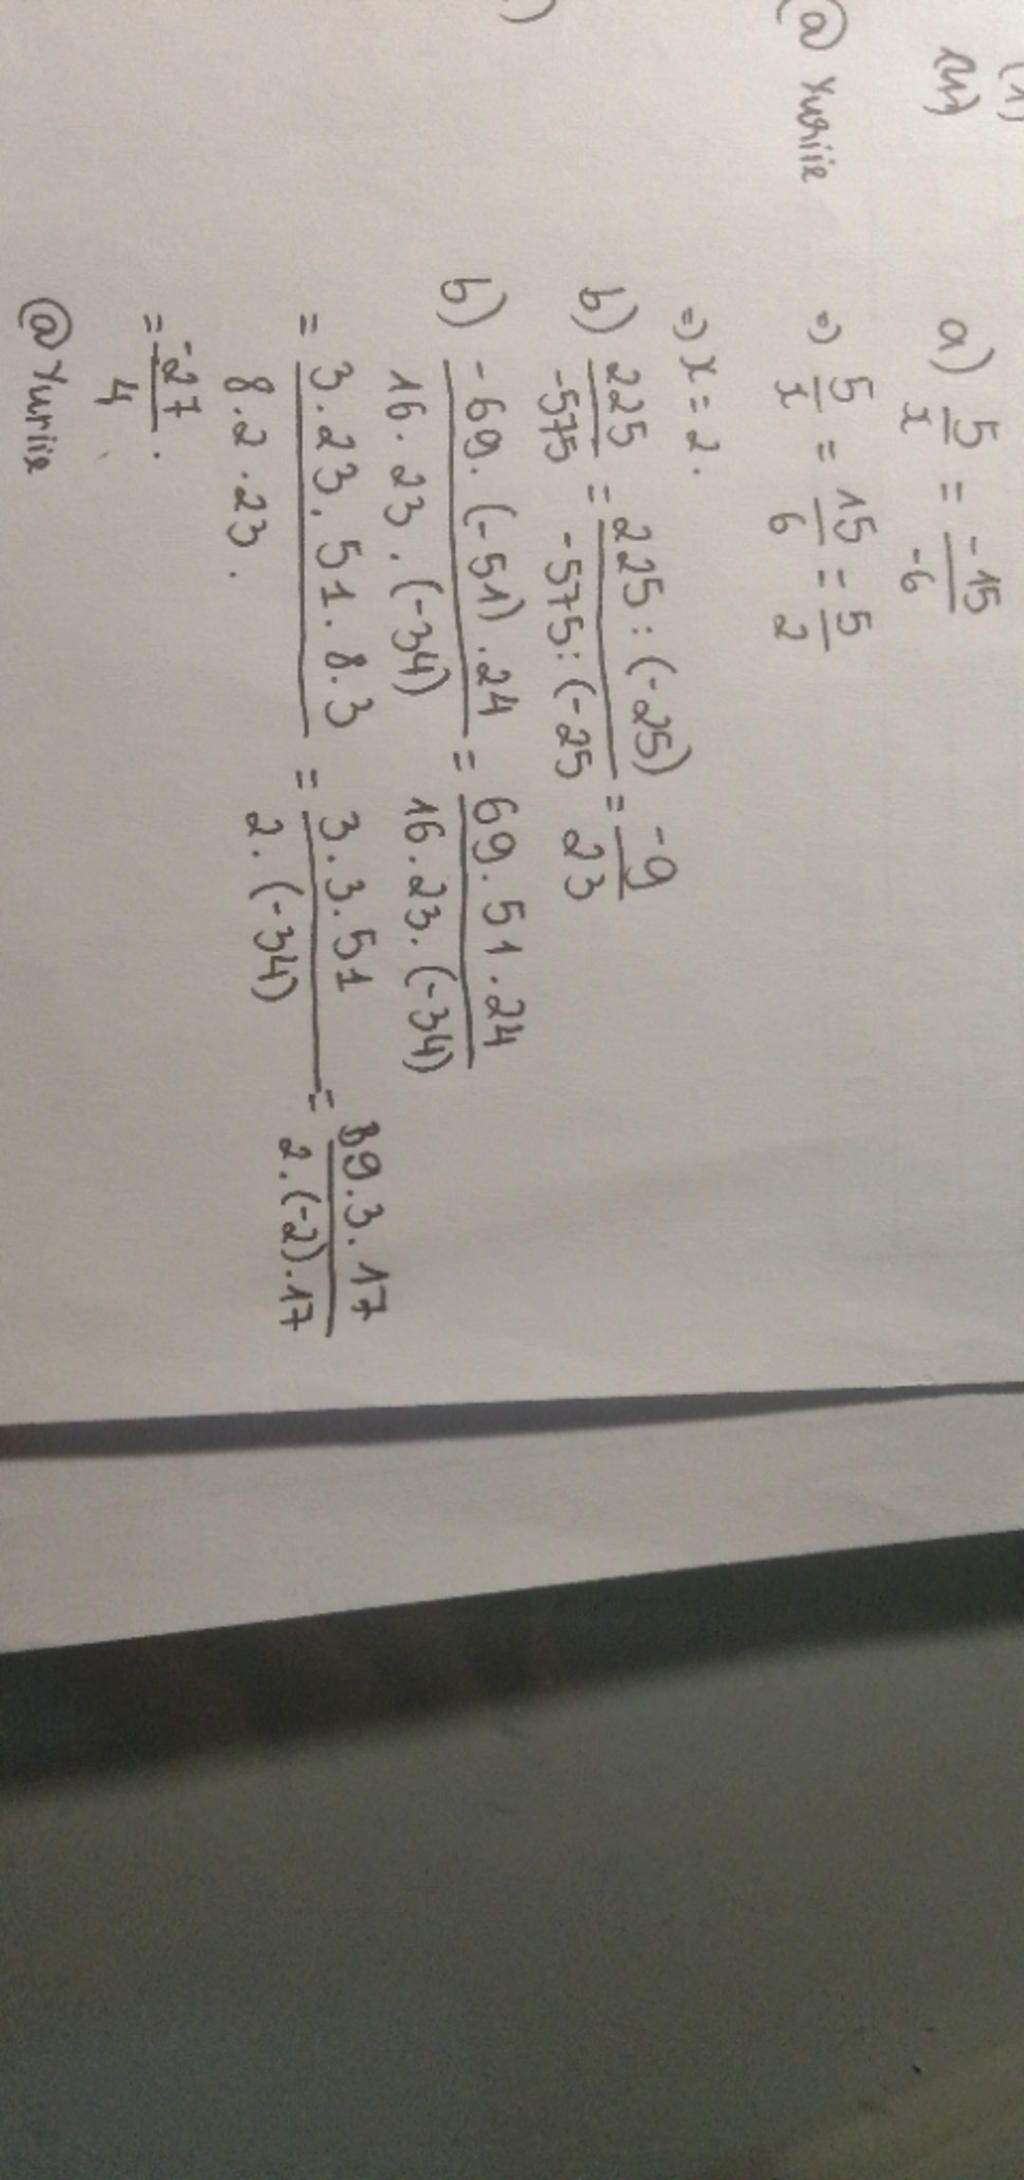 (1)
(4)
a) 5/x = -15/-6
=) 5/x = 15/6 = 5/2
@ Yuriie
=) x = 2.
b) 225/-575 = 225:(-25)/-575:(-25 = -9/23
b) -69.(-51).24/16.23.(-34) = 69.51.24/16.23.(-34)
= 3.23.51.8.3/8.2.23. = 3.3.51/2.(-34) = 9.3.17/2.(-2).17
= -27/4.
@ Yuriie